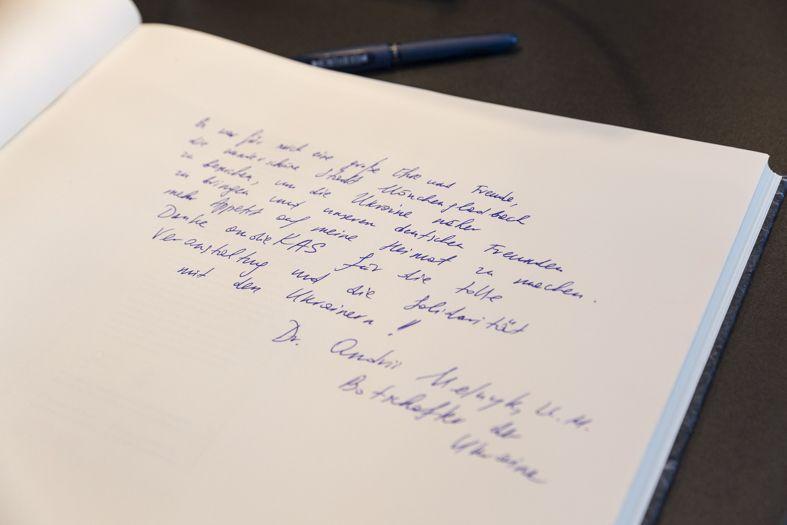 Es war für mich eine große Ehre und Freude,
die wunderschöne Stadt Mönchengladbach
zu besuchen, um die Ukraine näher
zu bringen und unseren deutschen Freunden
mehr Appetit auf meine Heimat zu machen.
Danke an die KAS für die tolle
Veranstaltung und die Solidarität
mit den Ukrainern!
Dr. Andrii Melnyk,
Botschafter der
Ukraine